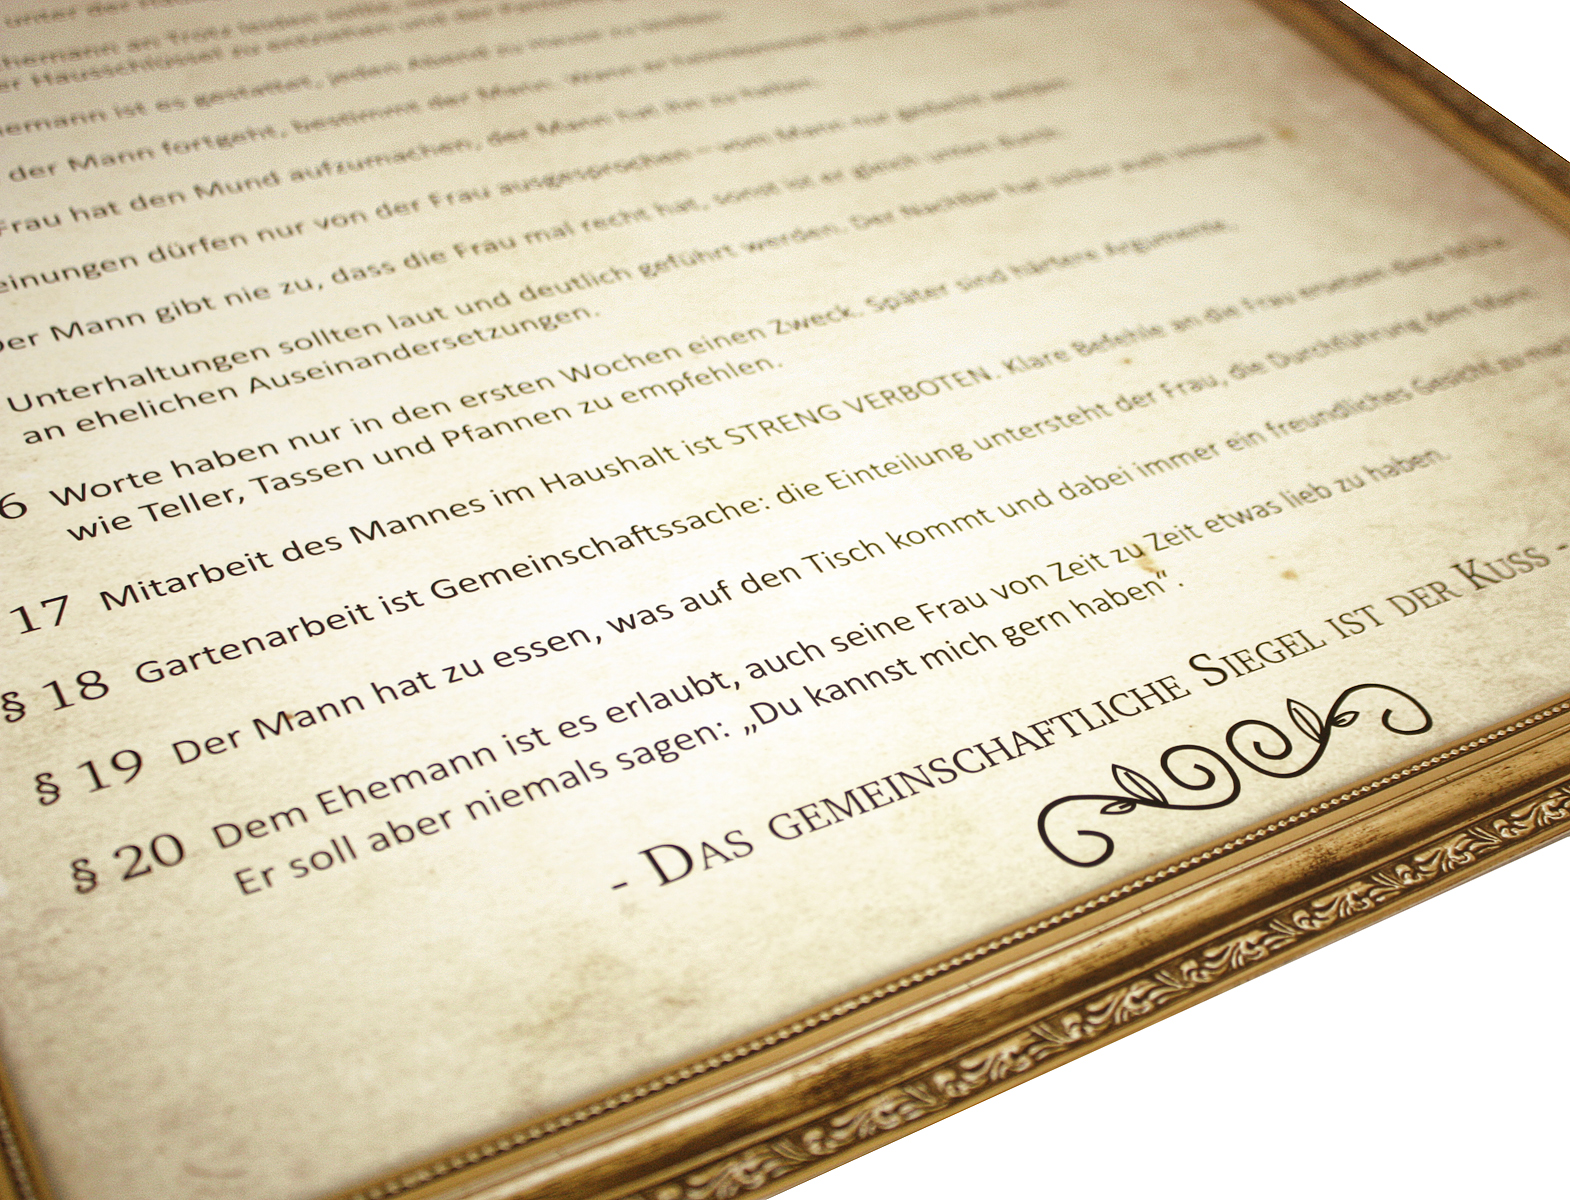 unter der
hemann an Trotz leiden sollte,
er Hausschlüssel zu entziehen und der
hemann ist es gestattet, jeden Abend zu Hause zu bleiben.
der Mann fortgeht, bestimmt der Mann. Wann er heimkommen soll, bestimmt die Frau.
Frau hat den Mund aufzumachen, der Mann hat ihn zu halten.
einungen dürfen nur von der Frau ausgesprochen – vom Mann nur gedacht werden.
Der Mann gibt nie zu, dass die Frau mal recht hat, sonst ist er gleich unten durch.
Unterhaltungen sollten laut und deutlich geführt werden. Der Nachbar hat sicher auch Interesse
an ehelichen Auseinandersetzungen.
6 Worte haben nur in den ersten Wochen einen Zweck. Später sind härtere Argumente,
wie Teller, Tassen und Pfannen zu empfehlen.
17 Mitarbeit des Mannes im Haushalt ist STRENG VERBOTEN. Klare Befehle an die Frau ersetzen diese Mühe.
§ 18 Gartenarbeit ist Gemeinschaftssache: die Einteilung untersteht der Frau, die Durchführung dem Mann.
§ 19 Der Mann hat zu essen, was auf den Tisch kommt und dabei immer ein freundliches Gesicht zu mac
§ 20 Dem Ehemann ist es erlaubt, auch seine Frau von Zeit zu Zeit etwas lieb zu haben.
Er soll aber niemals sagen: „Du kannst mich gern haben“ .
- Das gemeinschaftliche Siegel ist der Kuss -